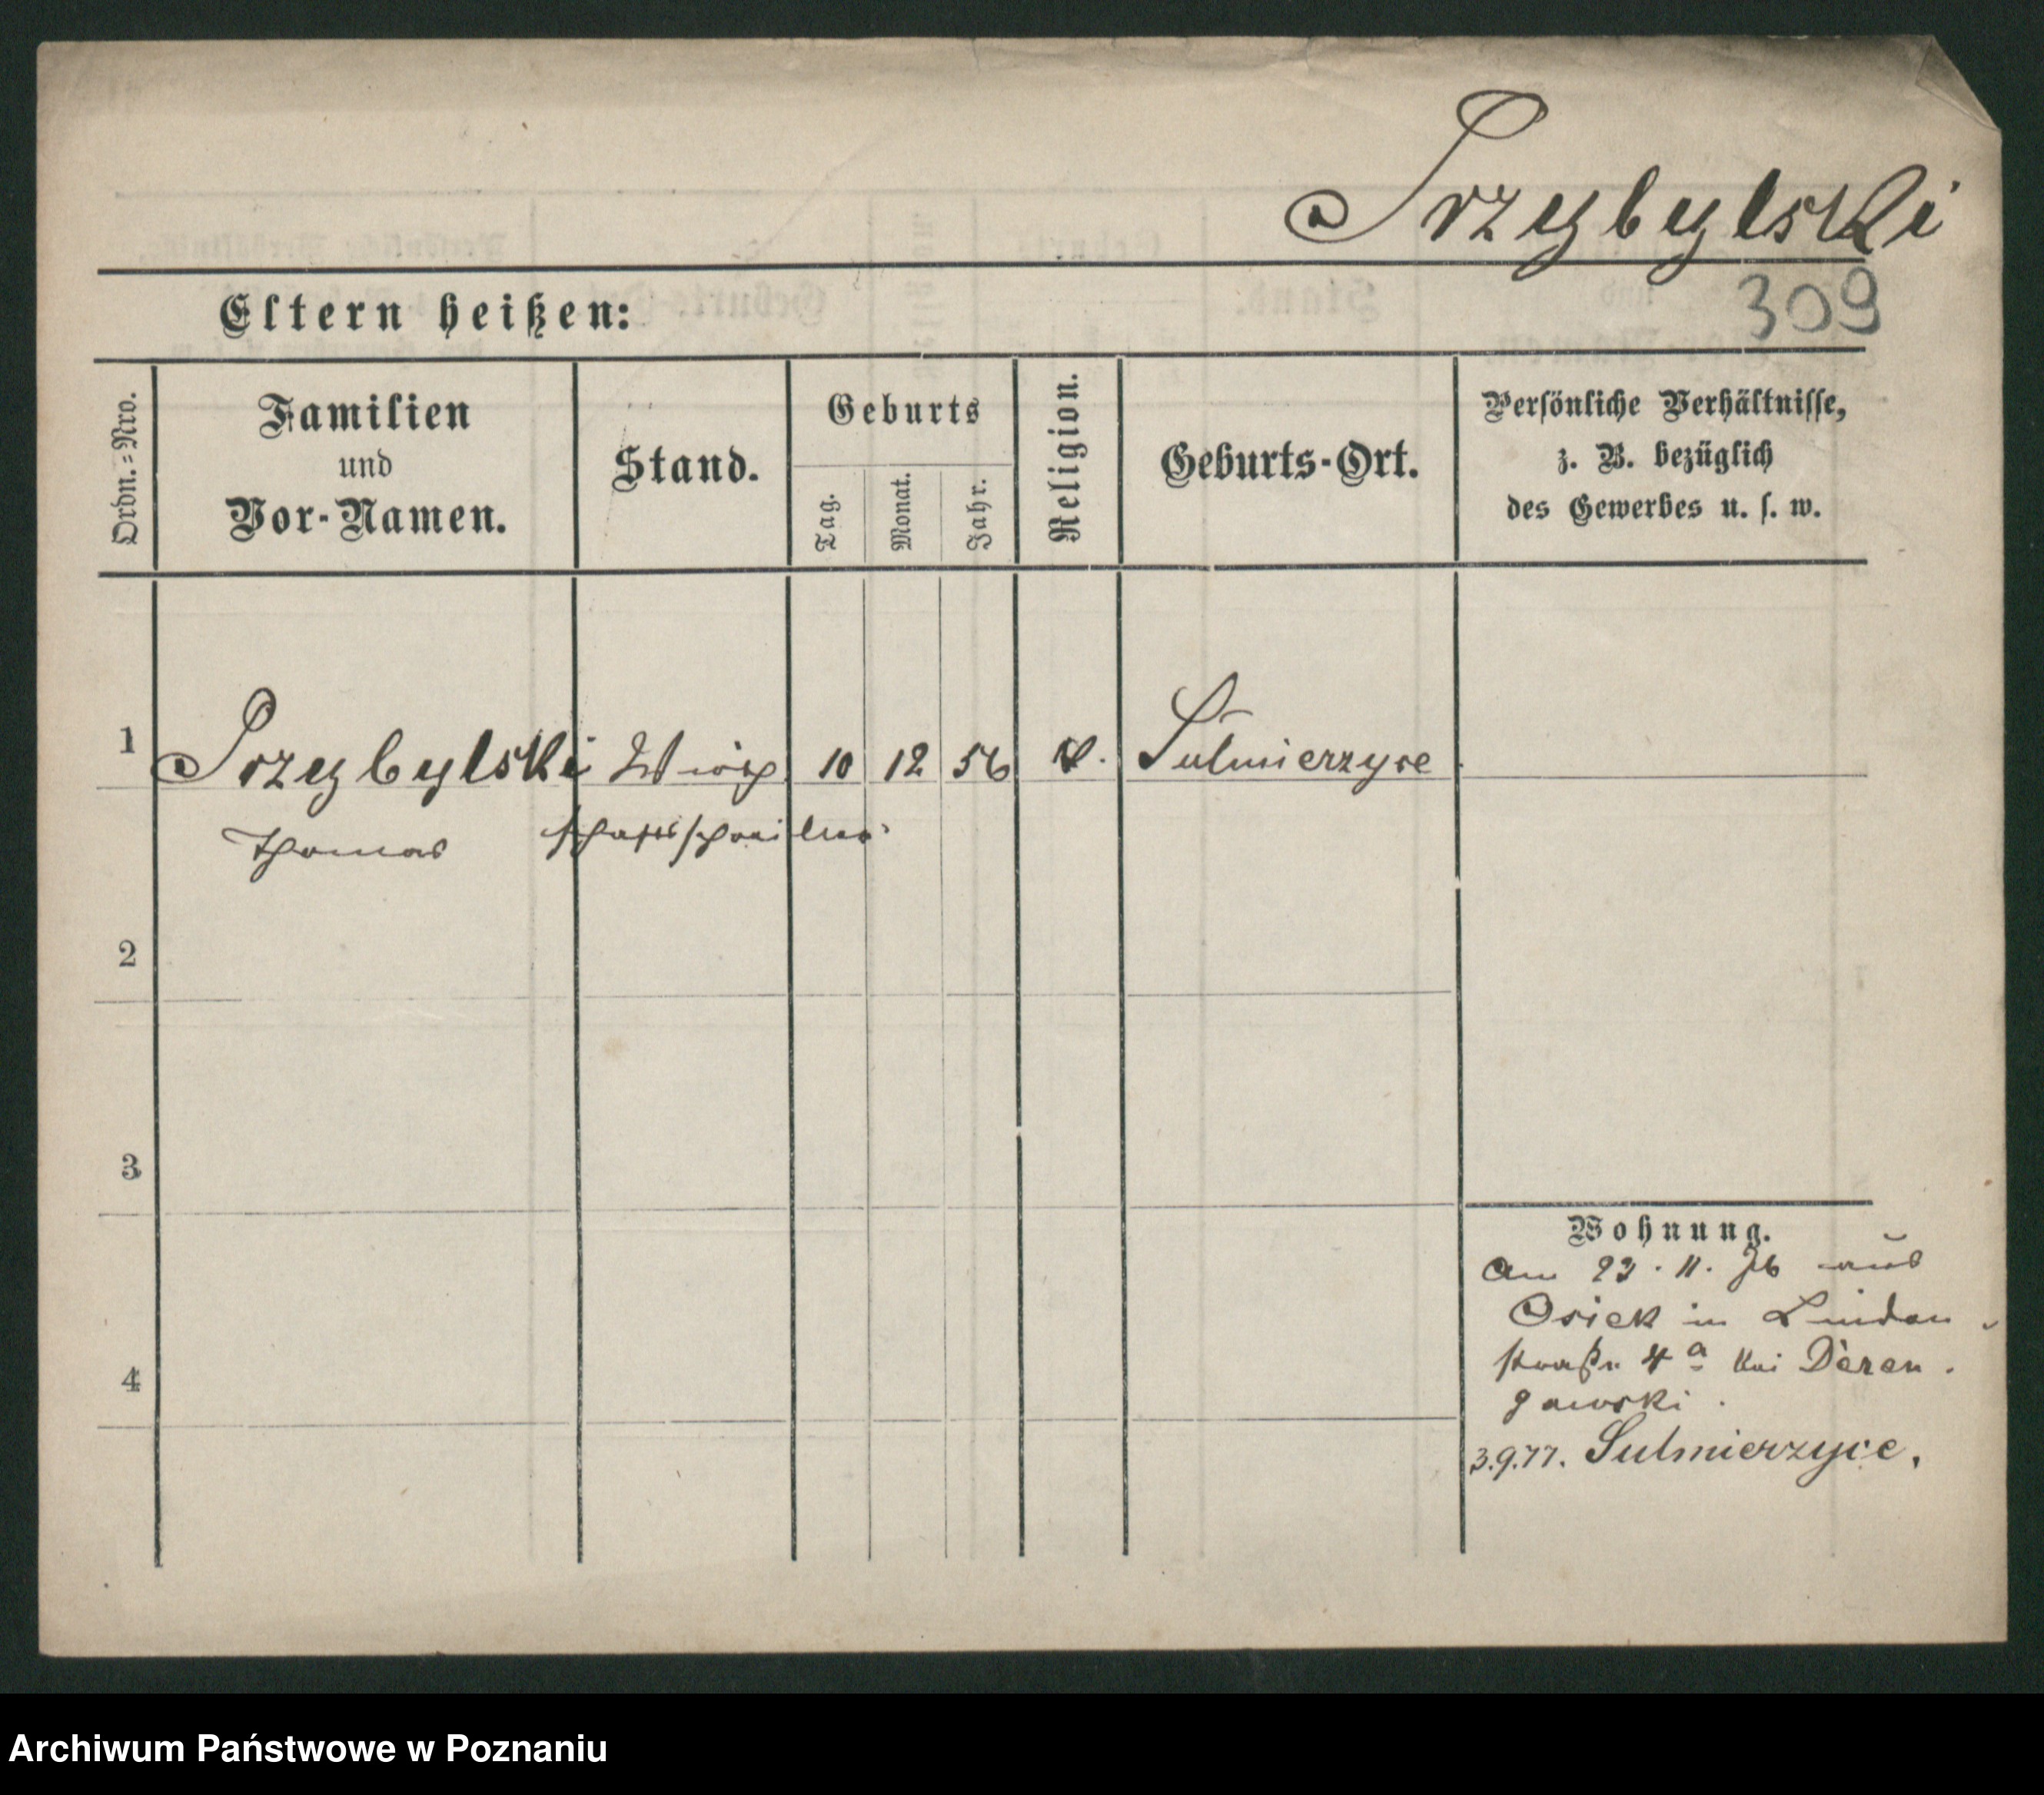 Przybylski
309
Eltern heißen:
Ordn.=Nro.
Familien
und
Vor-Namen.
Stand.
Geburts
Tag.
Monat.
Jahr.
Religion.
Geburts-Ort.
Persönliche Verhältnisse,
z. B. bezüglich
des Gewerbes u. s. w.
1 Przybylski Wirth 10 12 56 k. Sulmierzyce
Thomas schaftsschreiber
2
3
4
Wohnung.
Am 23. 11. 76 aus
Osiek in Linden
straße 4a bei Deren
gowski.
3.9.77. Sulmierzyce.
Archiwum Państwowe w Poznaniu